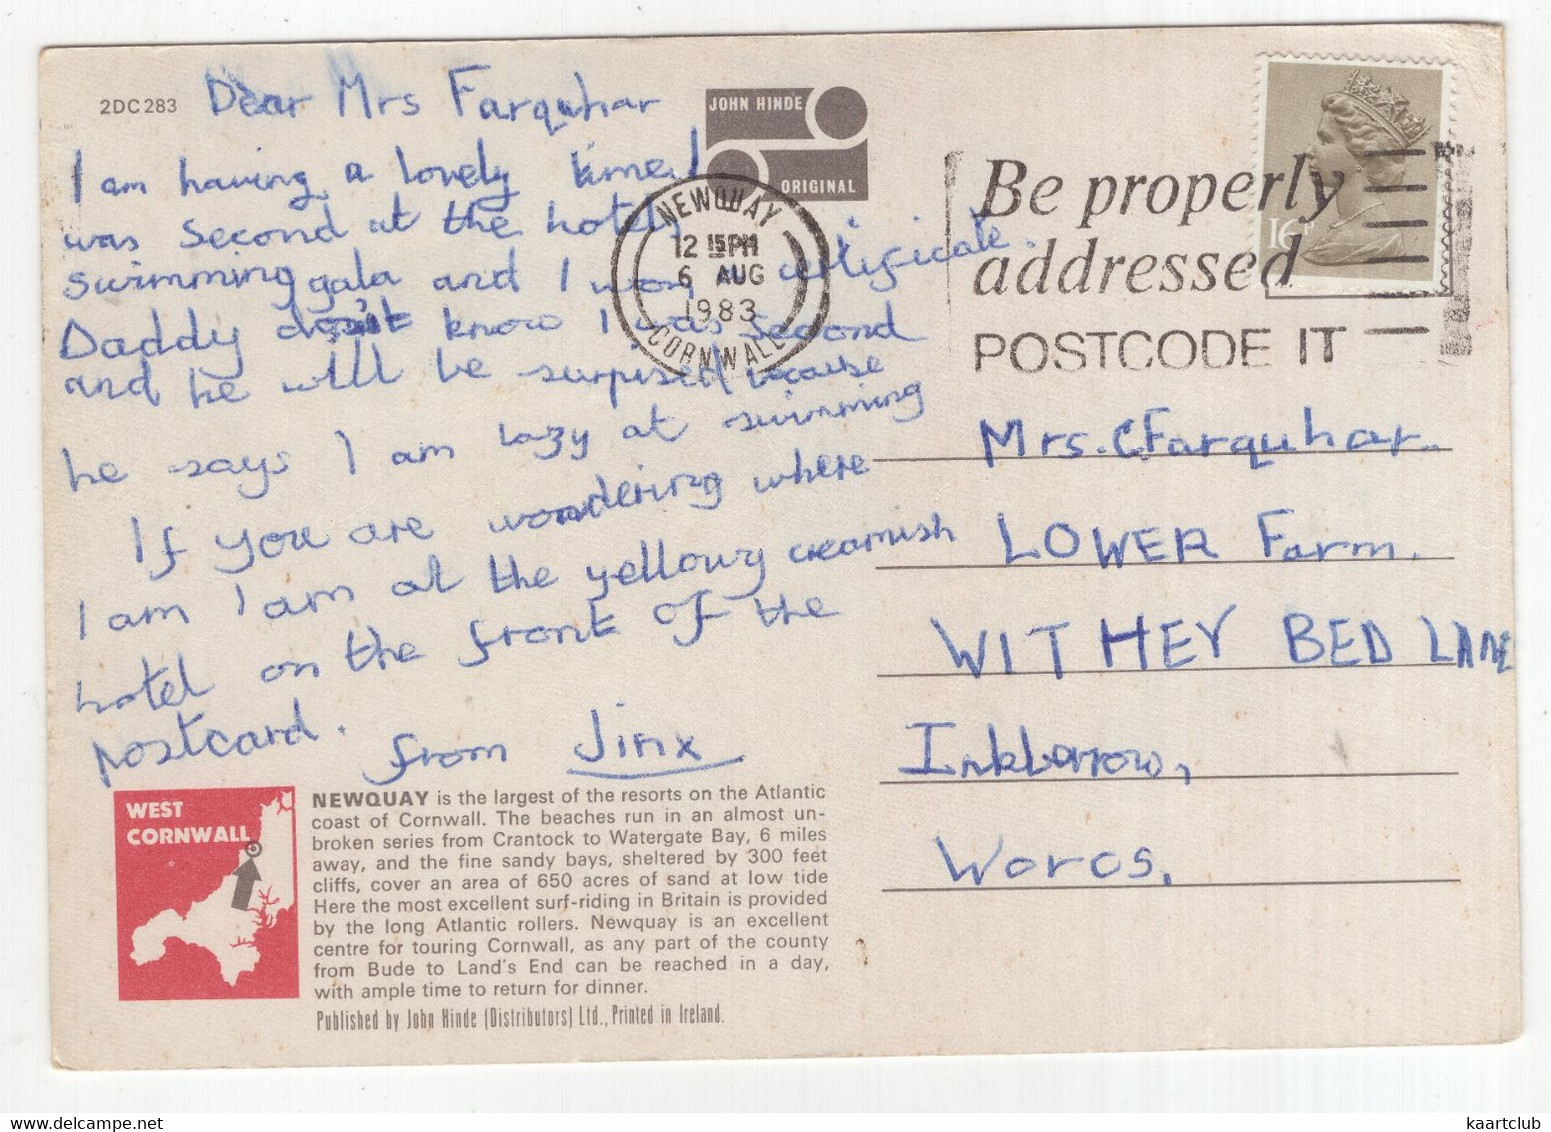 2DC283
Dear Mrs Farquhar
I am having a lovely time I
was second at the hotels
swimming gala and I won certificate.
Daddy know I was second
and he will be surprised because
he says I am lazy at swimming
If you are wondering where
I am I am at the yellowy creamish
hotel on the front of the
postcard.
from Jinx
JOHN HINDE
ORIGINAL
NEWQUAY
12 15PM
6 AUG
1983
CORNWALL
Be properly
addressed
POSTCODE IT
16P
Mrs. C Farquhar.
LOWER Farm.
WITHEY BED LANE
Inkberrow,
Worcs.
WEST
CORNWALL
NEWQUAY is the largest of the resorts on the Atlantic
coast of Cornwall. The beaches run in an almost un-
broken series from Crantock to Watergate Bay, 6 miles
away, and the fine sandy bays, sheltered by 300 feet
cliffs, cover an area of 650 acres of sand at low tide
Here the most excellent surf-riding in Britain is provided
by the long Atlantic rollers. Newquay is an excellent
centre for touring Cornwall, as any part of the county
from Bude to Land's End can be reached in a day,
with ample time to return for dinner.
Published by John Hinde (Distributors) Ltd., Printed in Ireland.
kaartclub